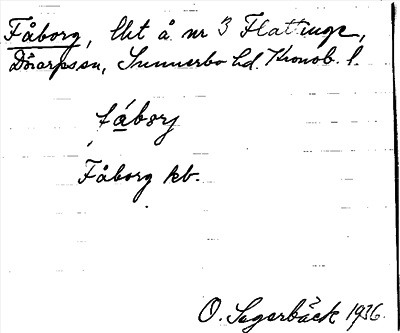 Fåborg, lht å nr 3 Flattinge,
Dörarps sn, Sunnerbo hd. Kronob. l.
fåbory
Fåborg kb.
O. Sagerbäck 1936.